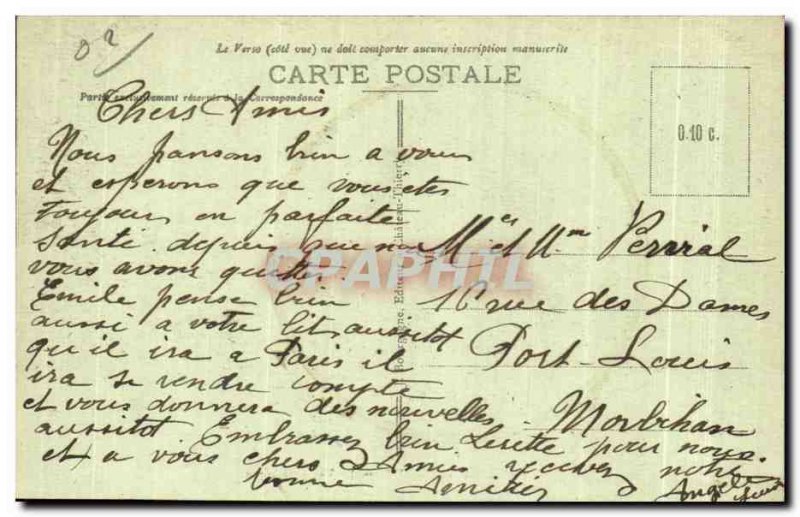 Le Verso (côté vue) ne doit comporter aucune inscription manuscrite
CARTE POSTALE
Partie exclusivement réservée à la Correspondance
0.10 c.
Chers Amis
Nous pansons bien a vous
et esperons que vous êtes
toujours en parfaite
Santé depuis que n
vous avons quitter
Emile pense bien
aussi a votre lit aussitot
qu'il ira a Paris il
ira se rendre compte
et vous donnera des nouvelles
aussitot Embrassez bien Lisette pour nous
et a vous chers Amis recevez notre
bonne Amitiés
Angele
Me et Mme Perrial
16 rue des Dames
Port-Louis
Morbihan
Editeur Château-Thierry
CPAPHIL